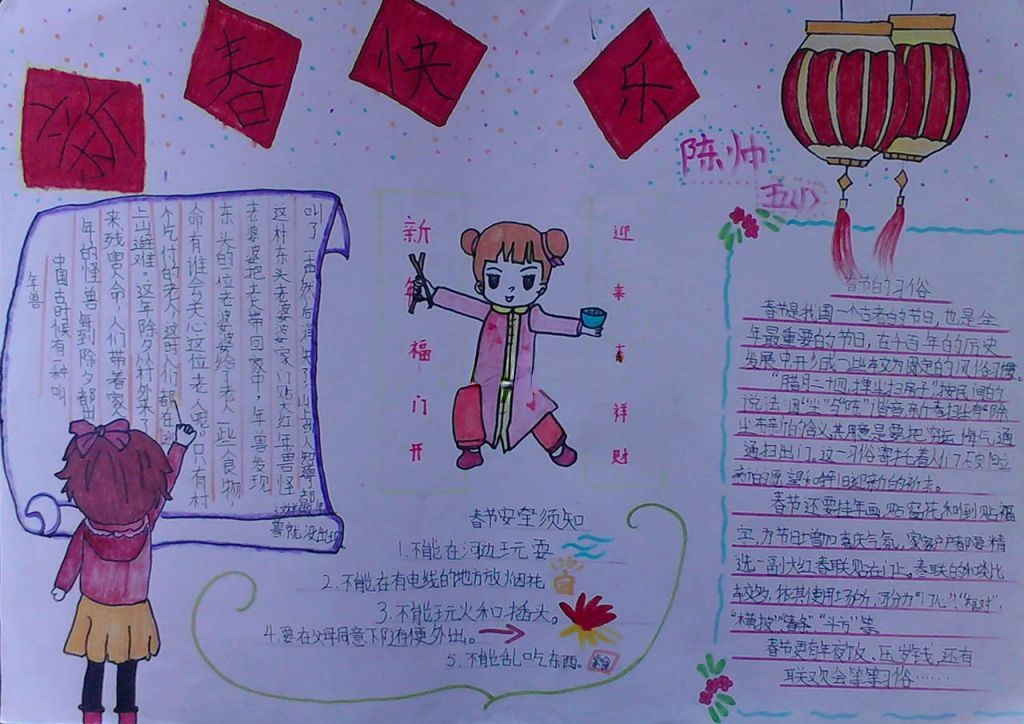 新
春
快
乐
陈帅
五(
新年福门开
迎来
祥财
年兽
中国古时候有一种叫
年的怪兽 每到除夕都出
来残害人命,人们带着家人
上山避难。这年除夕从村外来了
个乞讨的老人,这时人们都在
命有谁会关心这位老人呢。只有村
东头的一位老婆婆给了老人一些食物,
老婆婆把老人带回家中,年兽发现
这村东头老婆婆家门贴大红年兽怪
叫了一声
春节安全须知
1.不能在河边玩耍
2.不能在有电线的地方放烟花
3.不能玩火和插头。
4.要在父母同意下附有便外出。
5.不能乱吃东西。
春节的习俗
春节是我国一个古老的节日,也是全
年最重要的节日,在千百年的历史
发展中形成了一些较为固定的风俗习惯。
“腊月二十四,掸尘扫房子”按民间的
说法:因“尘”与“陈”谐音,新春扫尘有“除
尘布新”的含义,其用意是要把穷运、晦气通
通扫出门。这一习俗寄托着人们
新的愿望和辞旧迎新的祈求。
春节还要挂年画,贴窗花和倒贴福
字,为节日增加喜庆气氛。家家户户都要精
选一副大红春联贴在门上。春联的种类比
较多,依其使用场所,可分为“门心”、“框对”、
“横披”“春条”“斗方”等。
春节还有年夜饭、压岁钱,还有
联欢会等等习俗……